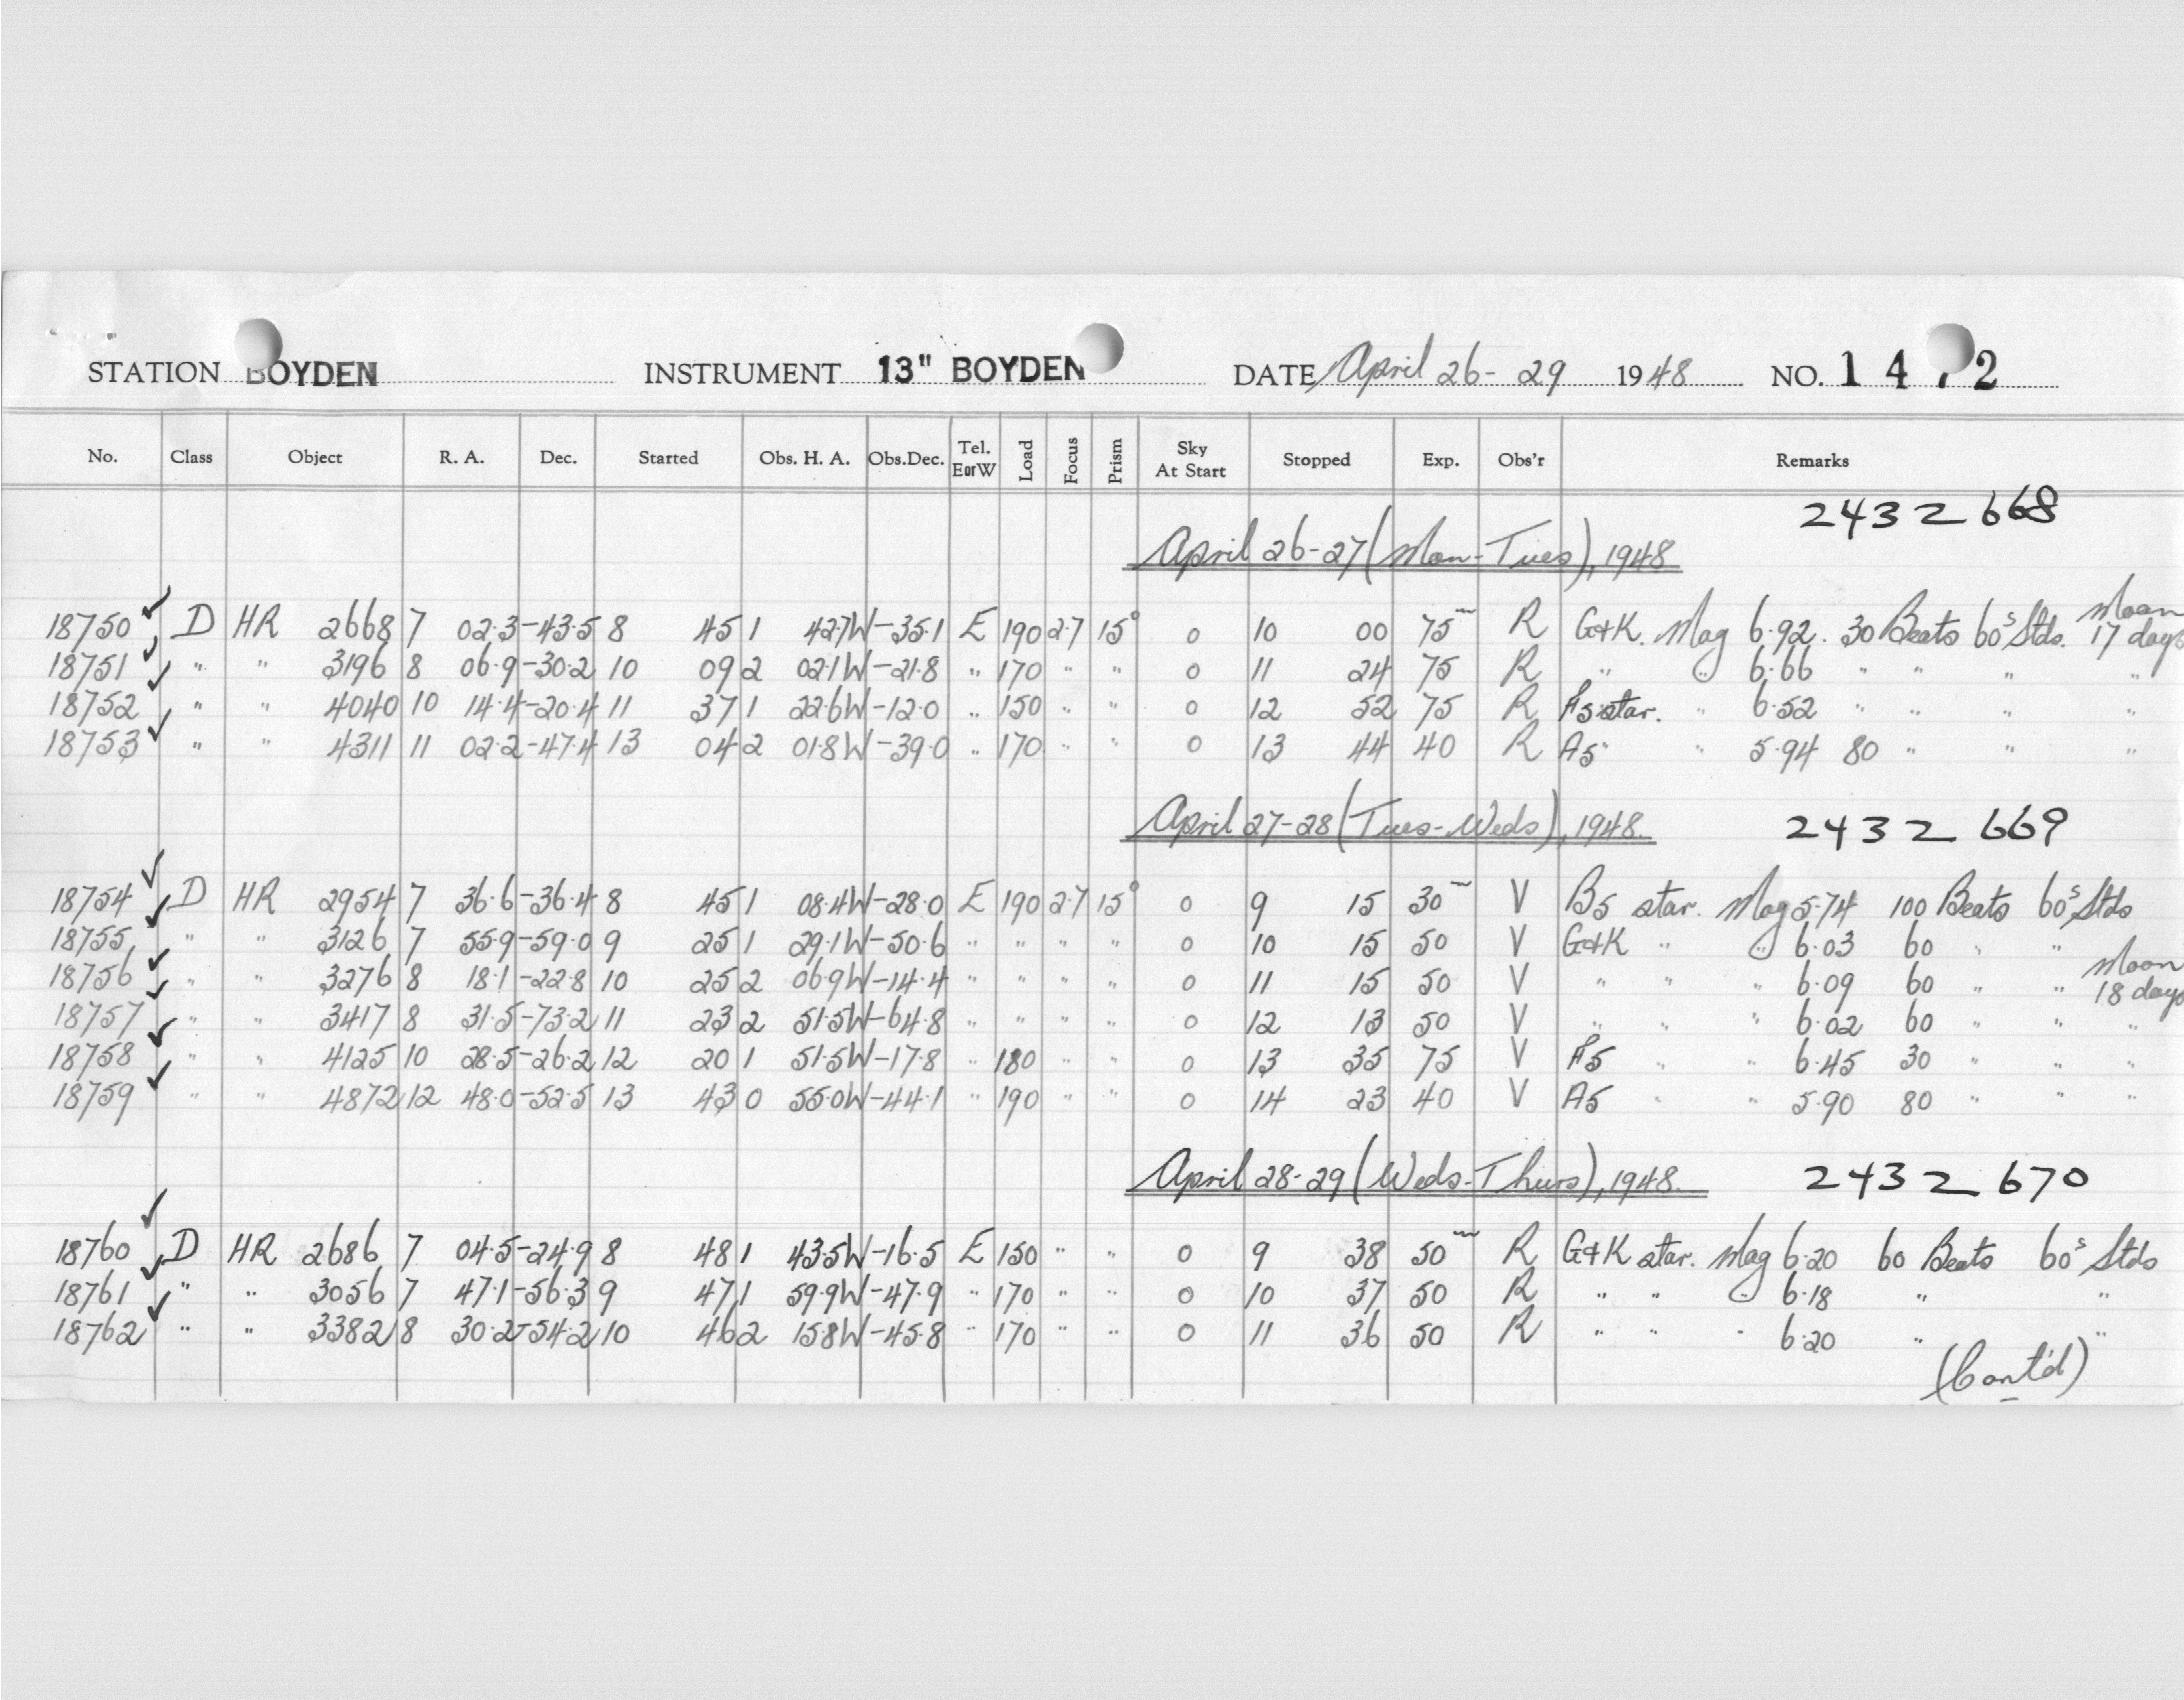 STATION BOYDEN INSTRUMENT 13" BOYDEN DATE April 26-29 1948 NO. 14 2
No. Class Object R. A. Dec. Started Obs. H. A. Obs.Dec. Tel. EorW Load Focus Prism Sky At Start Stopped Exp. Obs'r Remarks
2432668
April 26-27 (Mon-Tues), 1948
18750 ✓ D HR 2668 7 02.3 -43.5 8 45 1 42.7W -35.1 E 190 2.7 15° 0 10 00 75m R G+K. Mag 6.92. 30 Beats 60s Stds. Moon 17 days
18751 ✓ " " 3196 8 06.9 -30.2 10 09 2 02.1W -21.8 " 170 " " 0 11 24 75 R " " 6.66 " " " "
18752 ✓ " " 4040 10 14.4 -20.4 11 37 1 22.6W -12.0 " 150 " " 0 12 52 75 R F5 star. " 6.52 " " " "
18753 ✓ " " 4311 11 02.2 -47.4 13 04 2 01.8W -39.0 " 170 " " 0 13 44 40 R A5 " " 5.94 80 " " "
April 27-28 (Tues-Weds), 1948. 2432669
18754 ✓ D HR 2954 7 36.6 -36.4 8 45 1 08.4W -28.0 E 190 2.7 15° 0 9 15 30m V B5 star. Mag 5.74 100 Beats 60s Stds
18755 ✓ " " 3126 7 55.9 -59.0 9 25 1 29.1W -50.6 " " " " 0 10 15 50 V G+K " " 6.03 60 " "
18756 ✓ " " 3276 8 18.1 -22.8 10 25 2 06.9W -14.4 " " " " 0 11 15 50 V " " " 6.09 60 " " Moon 18 days
18757 ✓ " " 3417 8 31.5 -73.2 11 23 2 51.5W -64.8 " " " " 0 12 13 50 V " " " 6.02 60 " " "
18758 ✓ " " 4125 10 28.5 -26.2 12 20 1 51.5W -17.8 " 180 " " 0 13 35 75 V F5 " " 6.45 30 " " "
18759 ✓ " " 4872 12 48.0 -52.5 13 43 0 55.0W -44.1 " 190 " " 0 14 23 40 V A5 " " 5.90 80 " " "
April 28-29 (Weds-Thurs), 1948. 2432670
18760 ✓ D HR 2686 7 04.5 -24.9 8 48 1 43.5W -16.5 E 150 " " 0 9 38 50m R G+K star. Mag 6.20 60 Beats 60s Stds
18761 ✓ " " 3056 7 47.1 -56.3 9 47 1 59.9W -47.9 " 170 " " 0 10 37 50 R " " " 6.18 " "
18762 ✓ " " 3382 8 30.2 -54.2 10 46 2 15.8W -45.8 " 170 " " 0 11 36 50 R " " " 6.20 " "
(Cont'd)